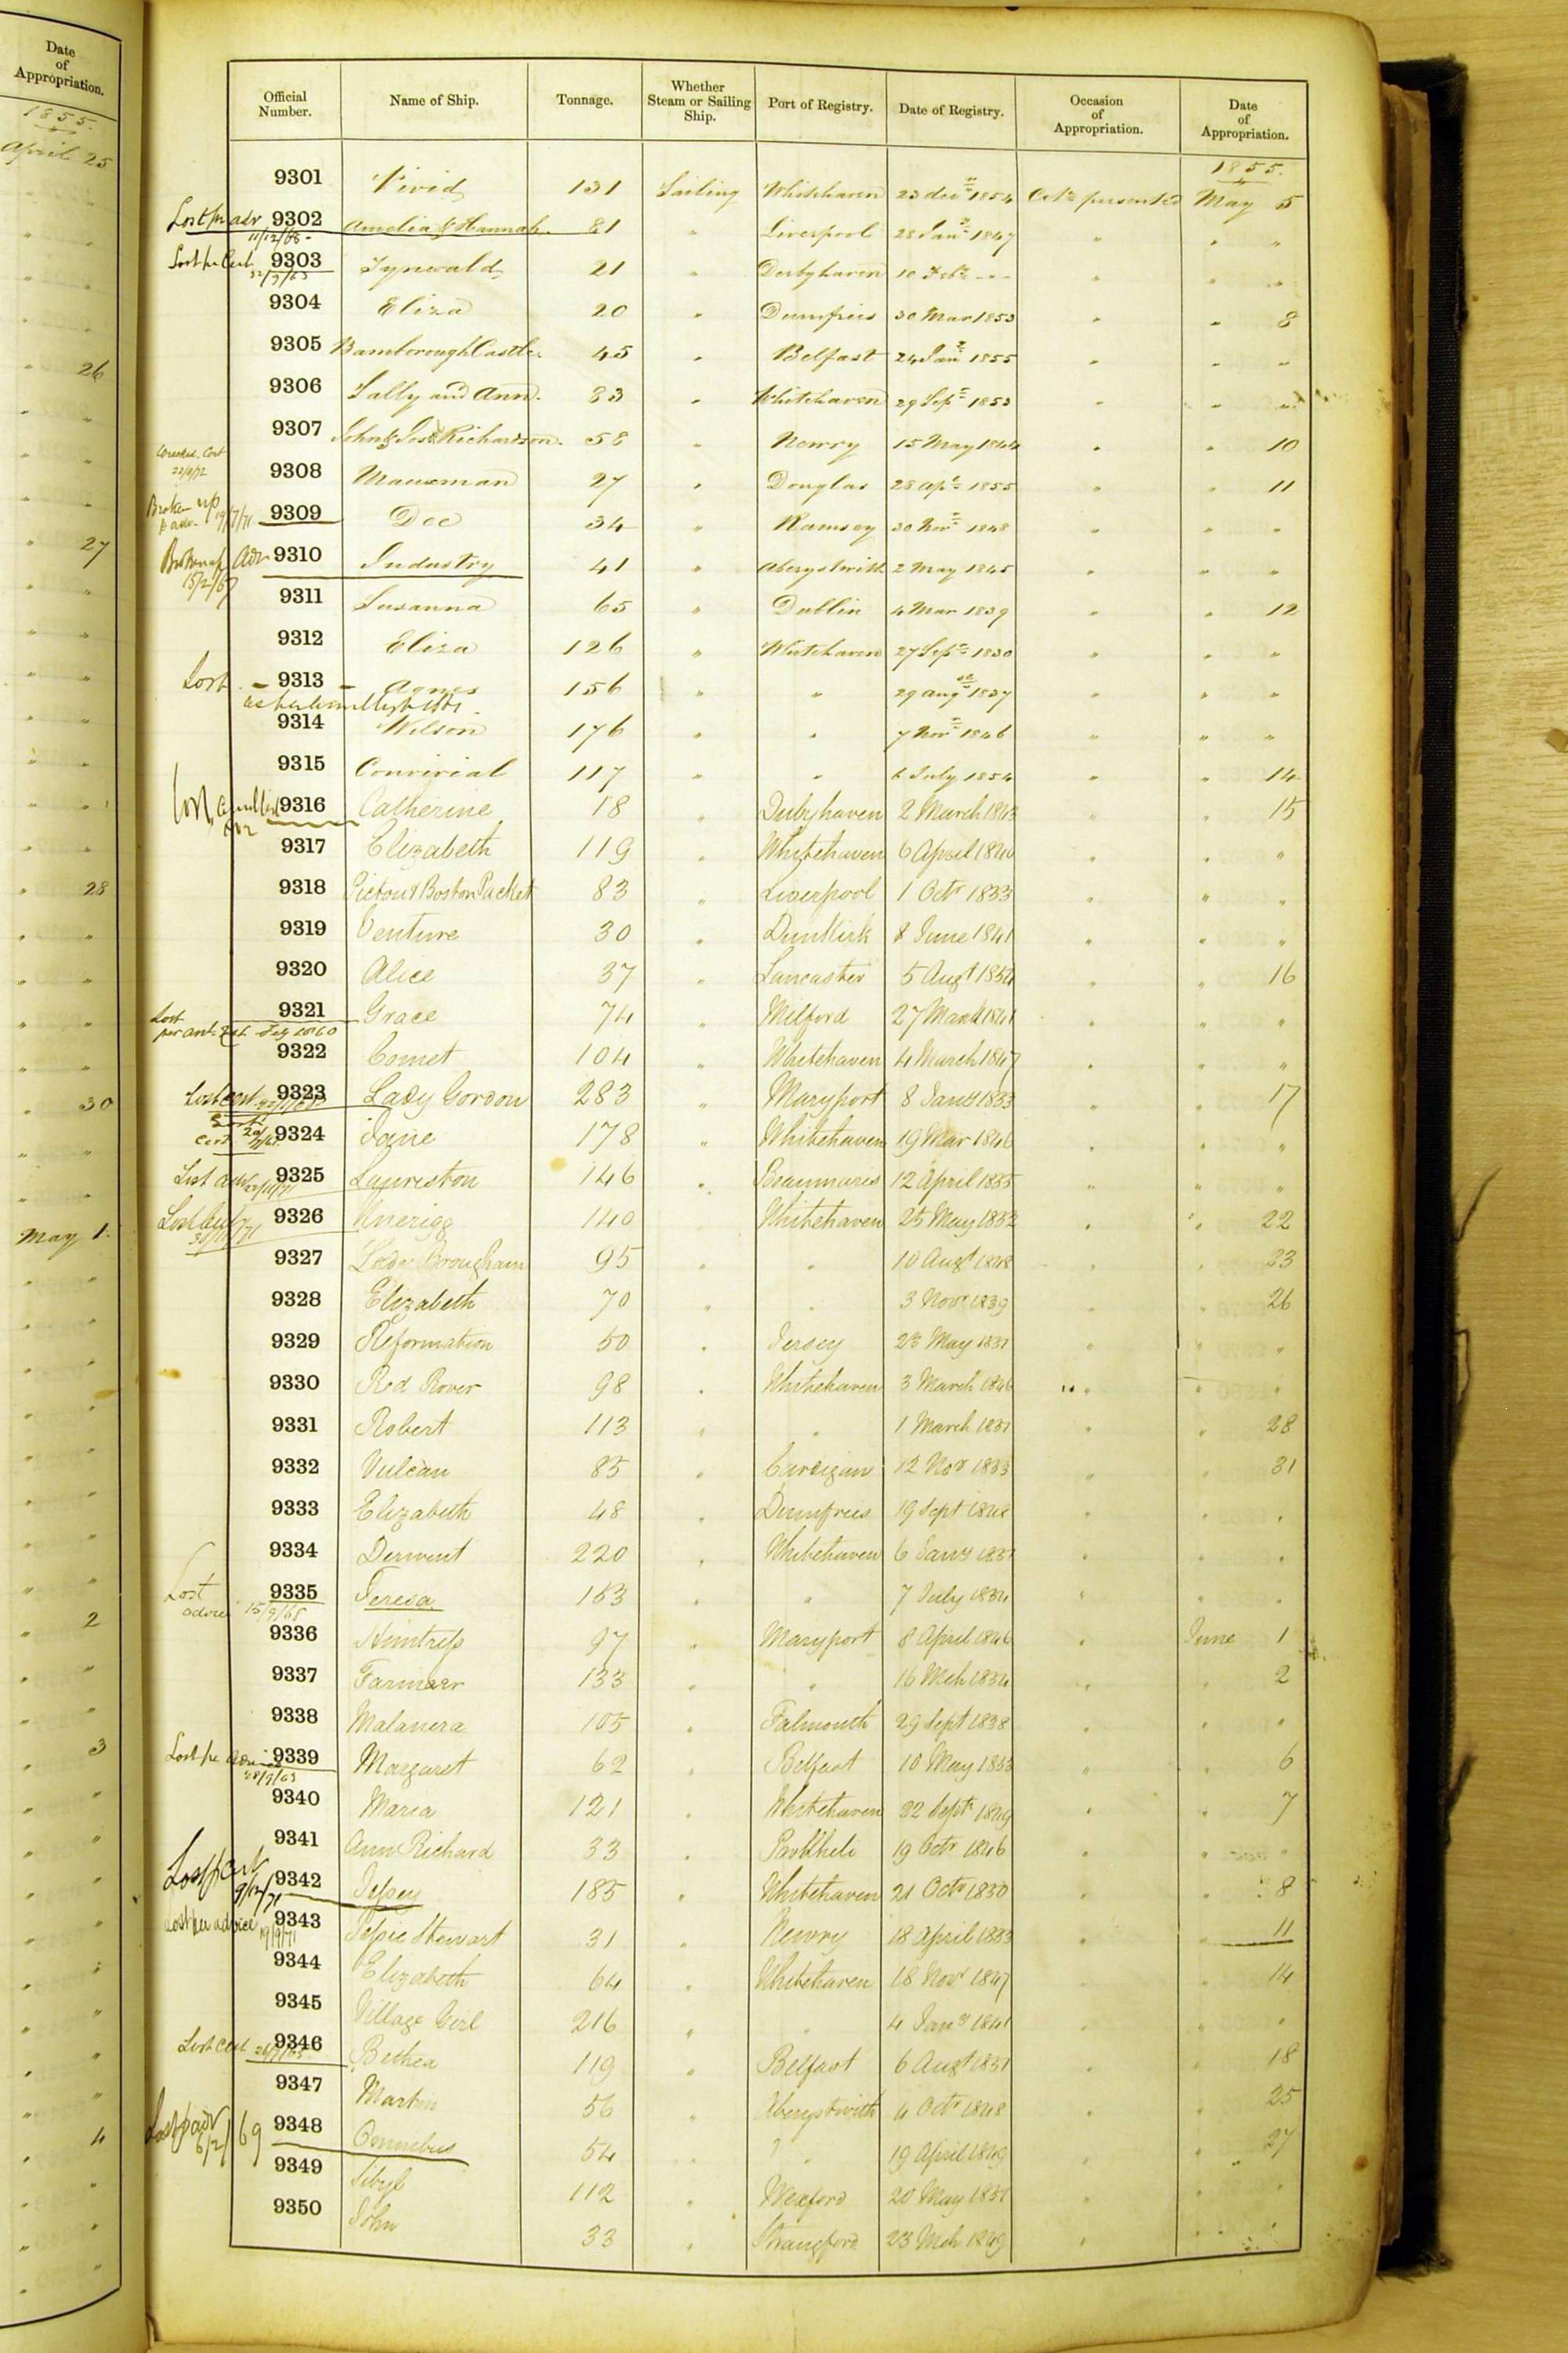 Date
of
Appropriation.
1855.
April 25
26
27
28
30
May 1.
2
3
4
Official Number. Name of Ship. Tonnage. Whether Steam or Sailing Ship. Port of Registry. Date of Registry. Occasion of Appropriation. Date of Appropriation.
1855.
9301 Vivid 131 Sailing Whitehaven 23 Decr 1854 May 5
Lost pr adv 9302 Amelia & Hannah 81 " Liverpool 28 Jany 1847 " " "
11/12/68
Lost pr Cert 9303 Tynwald 21 " Derbyhaven 10 Feby - - - " " "
9304 Eliza 20 " Dumfries 30 Mar 1853 " " 8
9305 Bamborough Castle 45 " Belfast 24 Jany 1855 " " "
9306 Sally and Ann 83 " Whitehaven 29 Sepr 1853 " " "
9307 John & Jos Richardson 58 " Newry 15 May 1844 " " 10
Wrecked. Cert
9308 27 " Douglas 28 Apl 1855 " " 11
Broken up
p adv. 19/7/71 9309 Dee 34 " Ramsey 30 Novr 1848 " " "
Broken up Adv 9310 Industry 41 " Aberystwith 2 May 1845 " " "
15/2/67
9311 Susanna 65 " Dublin 4 Mar 1839 " " 12
9312 Eliza 126 " Whitehaven 27 Sepr 1830 " " "
Lost - 9313 - Agnes 156 " " 29 Augst 1837 " " "
9314 Wilson 176 " " 7 Novr 1846 " " "
9315 Convivial 117 " " 6 July 1854 " " 14
Lost 9316 Catherine 18 " Derbyhaven 2 March 1843 " " 15
9317 Elizabeth 119 " Whitehaven 6 April 1840 " " "
9318 Pictou & Boston Packet 83 " Liverpool 1 Octr 1833 " " "
9319 Venture 30 " Dunkirk 8 June 1841 " " "
9320 Alice 37 " Lancaster 5 Augt 1854 " " 16
Lost 9321 Grace 74 " Milford 27 March 1841 " " "
9322 Comet 104 " Whitehaven 4 March 1847 " " "
Lost cert 9323 Lady Gordon 283 " Maryport 8 Jany 1833 " " 17
Cert 9324 Jane 178 " Whitehaven 19 Mar 1846 " " "
Lost adv 9325 Lauriston 146 " Beaumaris 12 April 1835 " " "
Lost Cert 9326 140 Whitehaven 25 May 1832 " " 22
9327 Lord Brougham 95 " " 10 Augt 1848 " " 23
9328 Elizabeth 70 " " 3 Novr 1839 " " 26
9329 Reformation 50 " Jersey 23 May 1831 " " "
9330 Red Rover 98 " Whitehaven 3 March 1846 " " "
9331 Robert 113 " " 1 March 1831 " " 28
9332 Vulcan 85 " Cardigan 12 Novr 1833 " " 31
9333 Elizabeth 48 " Dumfries 19 Sept 1848 " " "
9334 Derwent 220 " Whitehaven 6 Jany 1837 " " "
Lost 9335 Teresa 153 " " 7 July 1834 " " "
advice 15/9/65
9336 Huntress 97 " Maryport 8 April 1846 " June 1
9337 Farmer 133 " " 16 Mch 1834 " " 2
9338 105 " Falmouth 29 Sept 1838 " " "
Lost pr advice 9339 Margaret 62 " Belfast 10 May 1853 " " 6
9340 Maria 121 " Whitehaven 22 Septr 1849 " " 7
9341 Ann Richard 33 " Pwllheli 19 Octr 1846 " " "
Lost p Cert 9342 Jessey 185 " Whitehaven 21 Octr 1830 " " 8
9/12/71
Lost per advice 9343 Jessie Stewart 31 " Newry 18 April 1853 " " 11
19/9/71
9344 Elizabeth 64 " Whitehaven 18 Novr 1847 " " 14
9345 Village Girl 216 " " 4 Jany 1841 " " "
Lost Cert 9346 Bethea 119 " Belfast 6 Augt 1831 " " 18
9347 Martin 56 " Aberystwith 4 Octr 1848 " " 25
Lost p adv 9348 Omnibus 54 " " 19 April 1849 " " 27
6/2/69
9349 Sibyl 112 " Wexford 20 May 1851 " " "
9350 John 33 " Strangford 23 Mch 1849 " " "